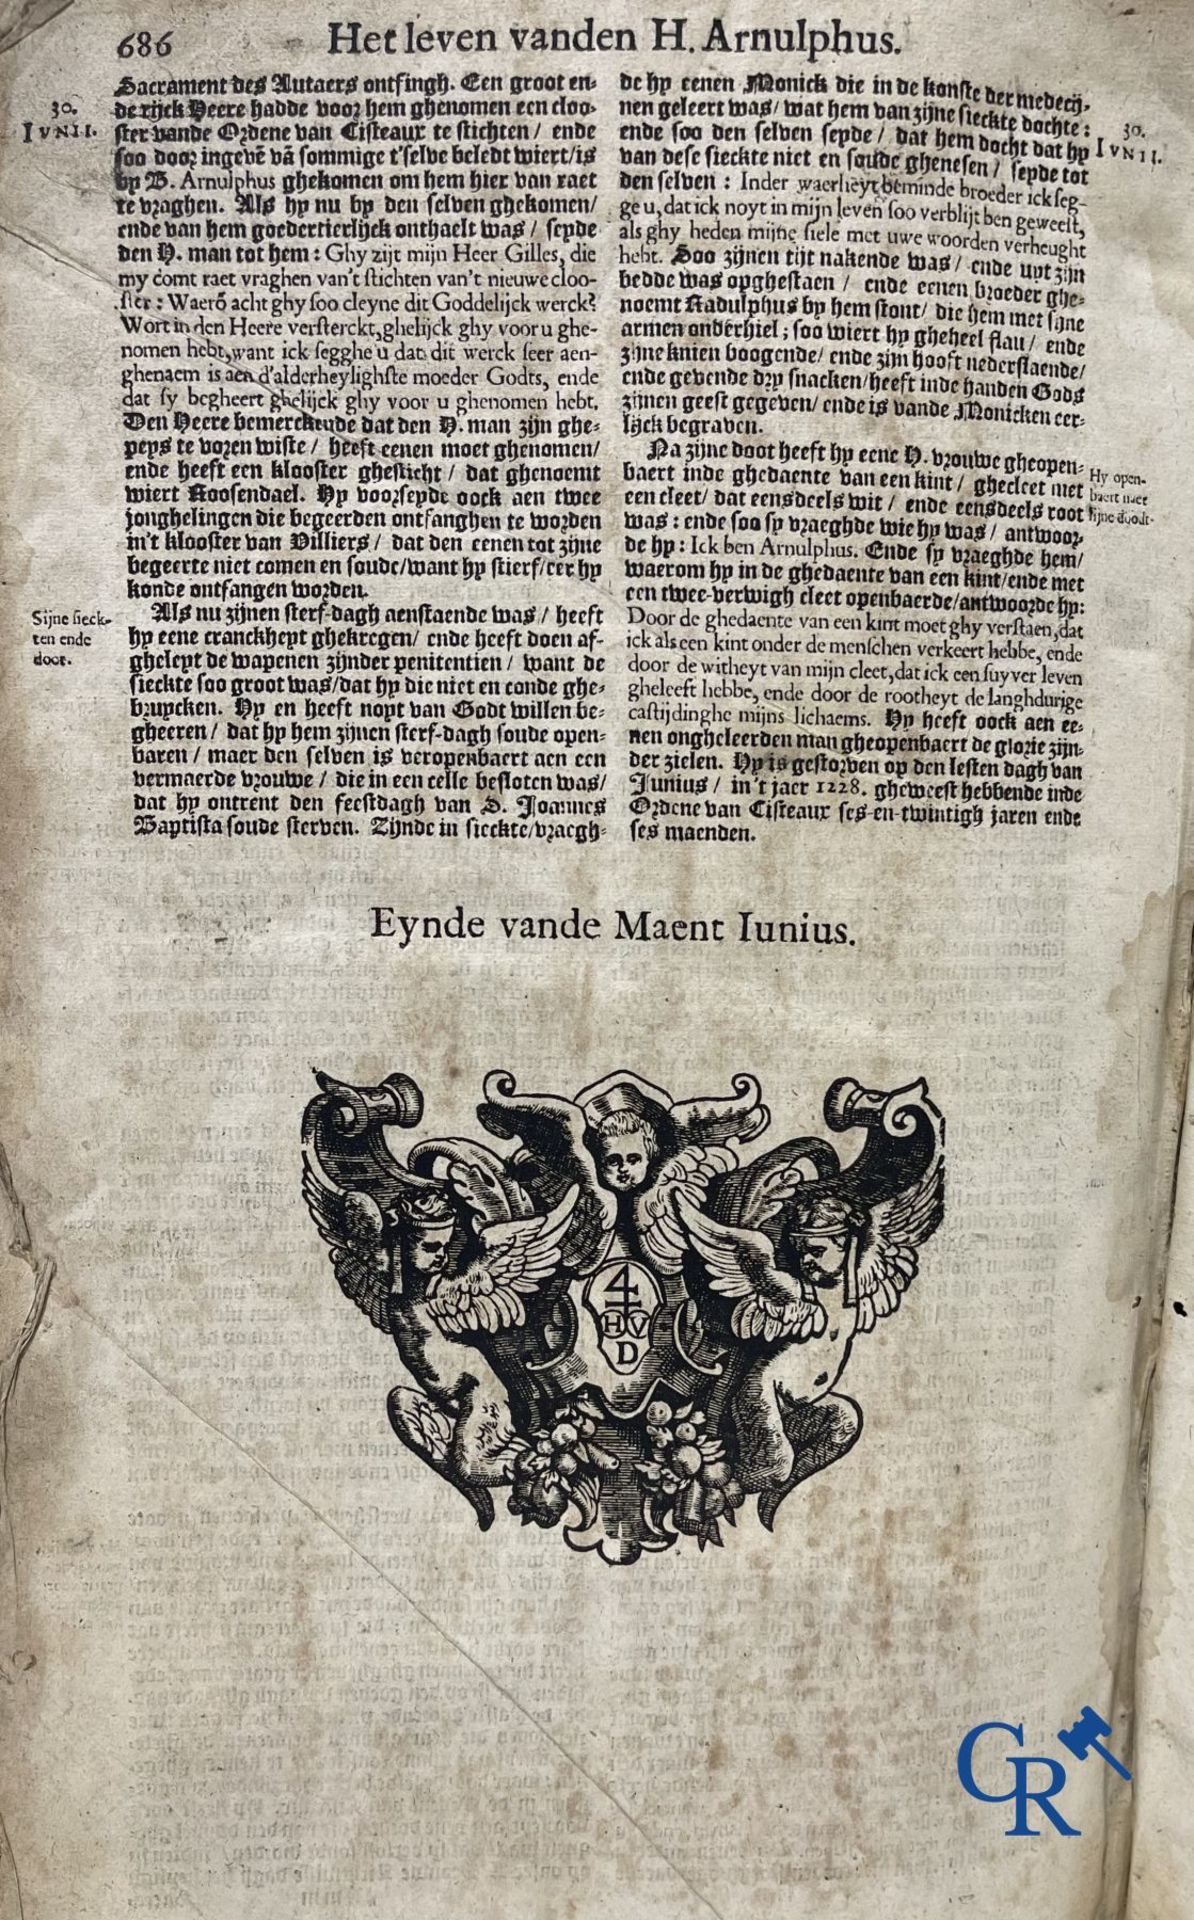 686
Het leven vanden H. Arnulphus.
30.
IVNII.
Sacrament des Autaers ontfingh. Een groot en-
de rijck Heere hadde voor hem ghenomen een cloo-
ster vande Ordene van Cisteaux te stichten / ende
soo door ingevē vā sommige t'selve beledt wiert/is
by B. Arnulphus ghekomen om hem hier van raet
te vraghen. Als hy nu by den selven ghekomen/
ende van hem goedertierlijck onthaelt was / seyde
den H. man tot hem: Ghy zijt mijn Heer Gilles, die
my comt raet vraghen van't stichten van't nieuwe cloo-
ster: Waerō acht ghy soo cleyne dit Goddelijck werck?
Wort in den Heere versterckt, ghelijck ghy voor u ghe-
nomen hebt, want ick segghe u dat dit werck seer aen-
ghenaem is aen d'alderheylighste moeder Godts, ende
dat sy begheert ghelijck ghy voor u ghenomen hebt.
Den Heere bemerckende dat den H. man zijn ghe-
peys te voren wiste / heeft eenen moet ghenomen/
ende heeft een klooster ghesticht / dat ghenoemt
wiert Roosendael. Hy voorseyde oock aen twee
jonghelingen die begeerden ontfanghen te worden
in't klooster van Villiers / dat den eenen tot zijne
begeerte niet comen en soude/want hy stierf/eer hy
konde ontfangen worden.
Sijne sieck-
ten ende
doot.
Als nu zijnen sterf-dagh aenstaende was / heeft
hy eene cranckheyt ghekregen/ ende heeft doen af-
gheleyt de wapenen zijnder penitentien / want de
sieckte soo groot was/dat hy die niet en conde ghe-
bruycken. Hy en heeft noyt van Godt willen be-
gheeren / dat hy hem zijnen sterf-dagh soude open-
baren / maer den selven is veropenbaert aen een
vermaerde vrouwe / die in een celle besloten was/
dat hy ontrent den feestdagh van S. Joannes
Baptista soude sterven. Zijnde in sieckte/vraegh-
de hy eenen Monick die in de konste der medecij-
nen geleert was/ wat hem van zijne sieckte dochte:
ende soo den selven seyde / dat hem docht dat hy
van dese sieckte niet en soude ghenesen / seyde tot
den selven: Inder waerheyt beminde broeder ick seg-
ge u, dat ick noyt in mijn leven soo verblijt ben geweest,
als ghy heden mijne siele met uwe woorden verheught
hebt. Soo zijnen tijt nakende was / ende uyt zijn
bedde was opghestaen / ende eenen broeder ghe-
noemt Radulphus by hem stont/ die hem met sijne
armen onderhiel; soo wiert hy gheheel flau / ende
zijne knien boogende/ ende zijn hooft nederslaende/
ende gevende dry snacken/heeft inde handen Gods
zijnen geest gegeven/ ende is vande Monicken eer-
lijck begraven.
30.
IVNII.
Na zijne doot heeft hy eene H. vrouwe gheopen-
baert inde ghedaente van een kint / ghecleet met
een cleet/ dat eensdeels wit / ende eensdeels root
was: ende soo sy vraeghde wie hy was / antwoor-
de hy: Ick ben Arnulphus. Ende sy vraeghde hem/
waerom hy in de ghedaente van een kint/ende met
een twee-verwigh cleet openbaerde/antwoorde hy:
Door de ghedaente van een kint moet ghy verstaen, dat
ick als een kint onder de menschen verkeert hebbe, ende
door de witheyt van mijn cleet, dat ick een suyver leven
gheleeft hebbe, ende door de rootheyt de langhdurige
castijdinghe mijns lichaems. Hy heeft oock aen ee-
nen ongheleerden man gheopenbaert de glorie zijn-
der zielen. Hy is gestorven op den lesten dagh van
Junius / in't jaer 1228. gheweest hebbende inde
Ordene van Cisteaux ses-en-twintigh jaren ende
ses maenden.
Hy open-
baert naer
sijne doodt.
Eynde vande Maent Iunius.
4
HV
D
CR